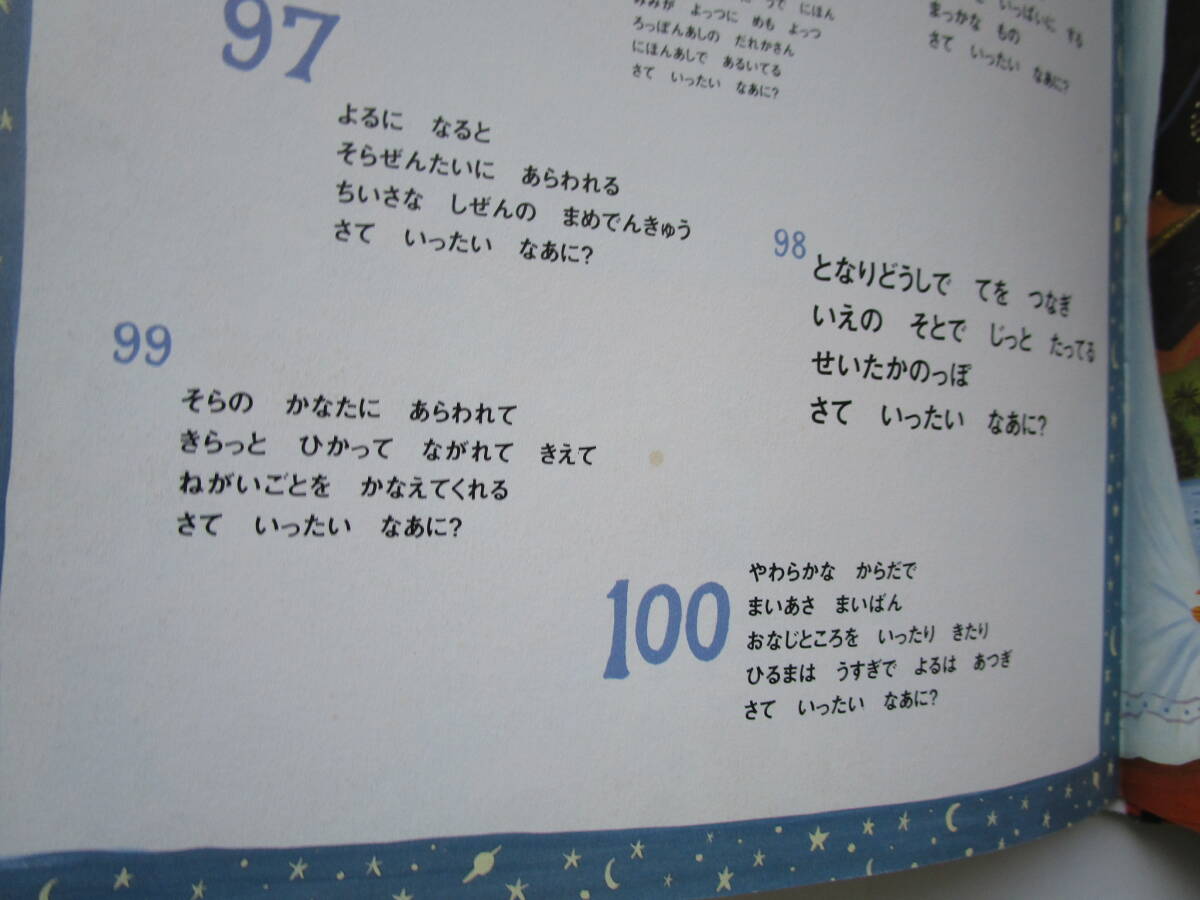 97
よるに なると
そらぜんたいに あらわれる
ちいさな しぜんの まめでんきゅう
さて いったい なあに?
にほん
みみが よっつに めも よっつ
ろっぽんあしの だれかさん
にほんあしで あるいてる
さて いったい なあに?
いっぱいに する
まっかな もの
さて いったい なあに?
98
となりどうしで てを つなぎ
いえの そとで じっと たってる
せいたかのっぽ
さて いったい なあに?
99
そらの かなたに あらわれて
きらっと ひかって ながれて きえて
ねがいごとを かなえてくれる
さて いったい なあに?
100
やわらかな からだで
まいあさ まいばん
おなじところを いったり きたり
ひるまは うすぎで よるは あつぎ
さて いったい なあに?